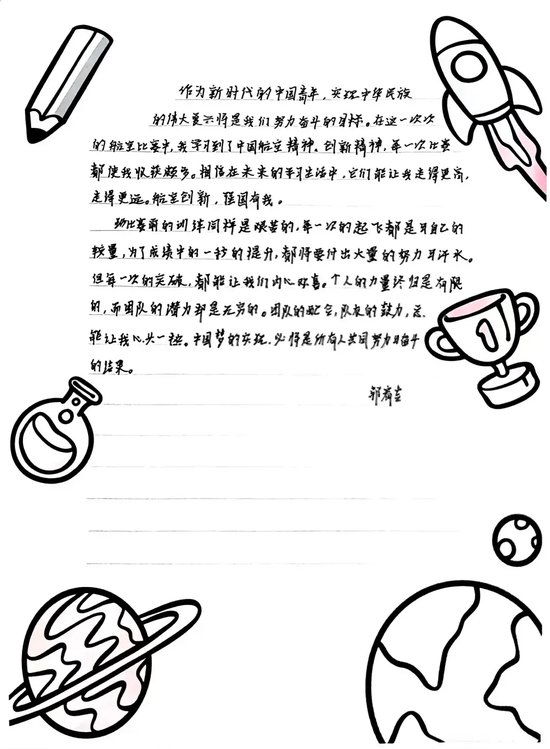 作为新时代的中国青年,实现中华民族
的伟大复兴将是我们努力奋斗的目标。在这一次次
的航空比赛中,我学习到了中国航空精神、创新精神,每一次比赛
都使我收获颇多。相信在未来的学习生活中,它们能让我走得更高,
走得更远。航空创新,强国有我。
比赛前的训练同样是艰苦的,每一次的起飞都是与自己的
较量,为了成绩中的一秒的提升,都将要付出大量的努力与汗水。
但每一次的突破,都能让我们内心欢喜。个人的力量终归是有限
的,而团队的潜力却是无穷的。团队的配合,队友的鼓力,总
能让我心头一振。中国梦的实现,必将是所有人共同努力与奋斗
的结果。
1